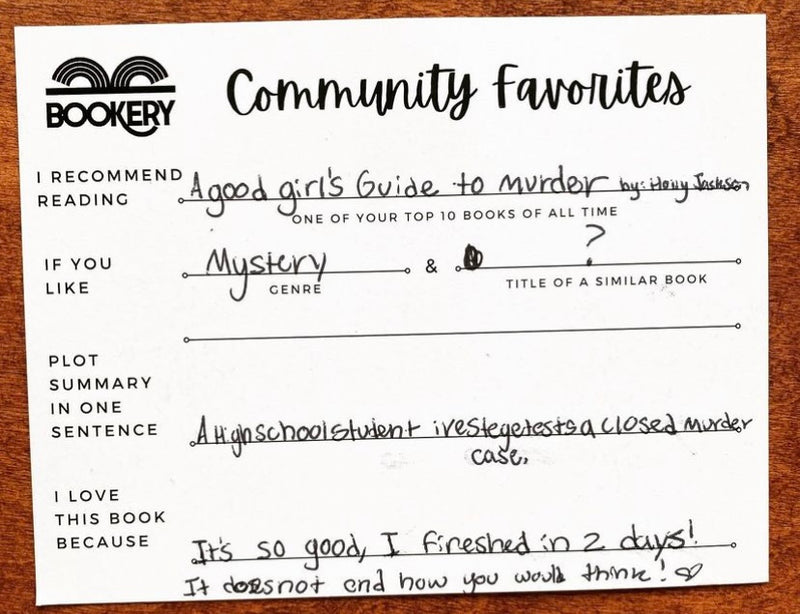 BOOKERY
Community Favorites
I RECOMMEND
READING
A good girl's Guide to murder by: Holly Jackson
ONE OF YOUR TOP 10 BOOKS OF ALL TIME
IF YOU
LIKE
Mystery & ?
GENRE
TITLE OF A SIMILAR BOOK
PLOT
SUMMARY
IN ONE
SENTENCE
A Highschool student ivestegetests a closed murder
case.
I LOVE
THIS BOOK
BECAUSE
It's so good, I fineshed in 2 days!
It does not end how you would think! ♡